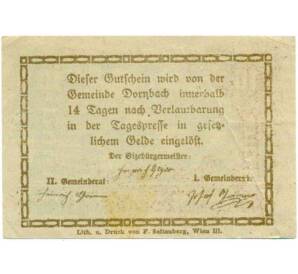 Dieser Gutschein wird von der
Gemeinde Dornbach innerhalb
14 Tagen nach Verlautbarung
in der Tagespresse in gesetz-
lichem Gelde eingelöst.
Der Vizebürgermeister:
II. Gemeinderat: I. Gemeinderat:
Lith. u. Druck von F. Soltenberg, Wien III.